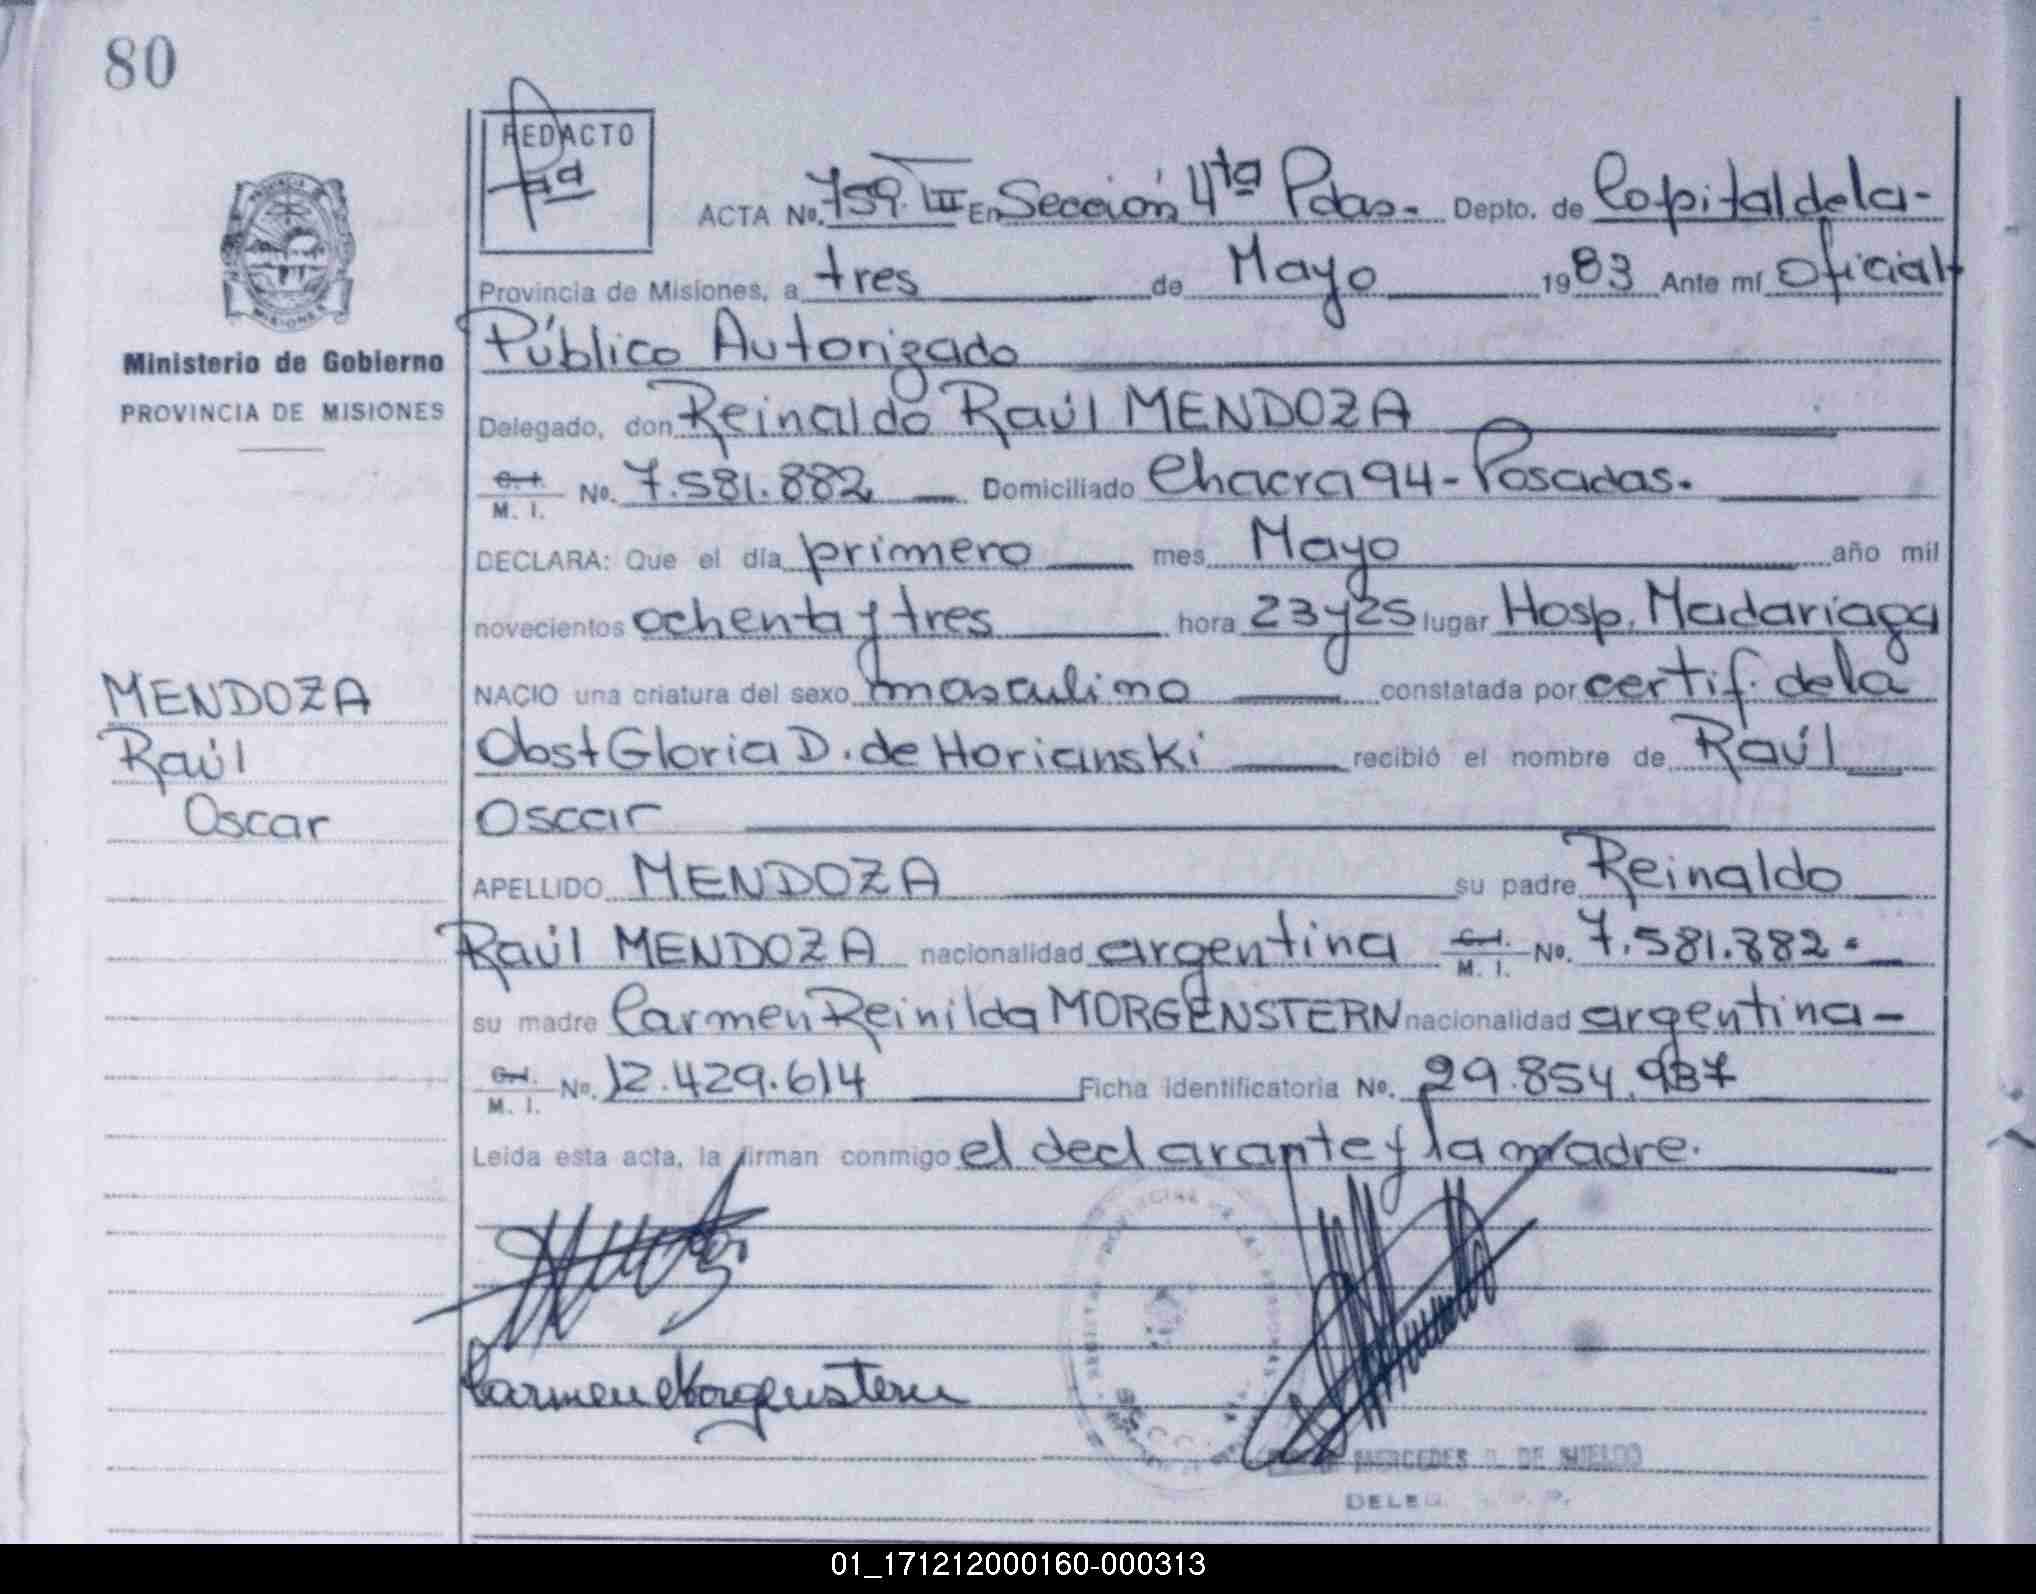 80
REDACTO
ACTA No. 759. III En Sección 4ta Pdas. Depto. de Capital de la-
Provincia de Misiones, a tres de Mayo 1983 Ante mí Oficial
Ministerio de Gobierno
PROVINCIA DE MISIONES
Público Autorizado
Delegado, don Reinaldo Raúl MENDOZA
C. I. M. I. No. 7.581.882 Domiciliado Chacra 94 - Posadas.
DECLARA: Que el día primero mes Mayo año mil
novecientos ochenta y tres hora 23y25 lugar Hosp. Madariaga
NACIO una criatura del sexo masculino constatada por certif. de la
Obst Gloria D. de Horianski recibió el nombre de Raúl
Oscar
MENDOZA
Raúl
Oscar
APELLIDO MENDOZA su padre Reinaldo
Raúl MENDOZA nacionalidad argentina C. I. M. I. No. 7.581.882.
su madre Carmen Reinilda MORGENSTERN nacionalidad argentina-
C. I. M. I. No. 12.429.614 Ficha identificatoria No. 29.854.937
Leída esta acta, la firman conmigo el declarante y la madre.
Carmen Morgenstern
MERCEDES DE SUELDO
DELEG
01_171212000160-000313